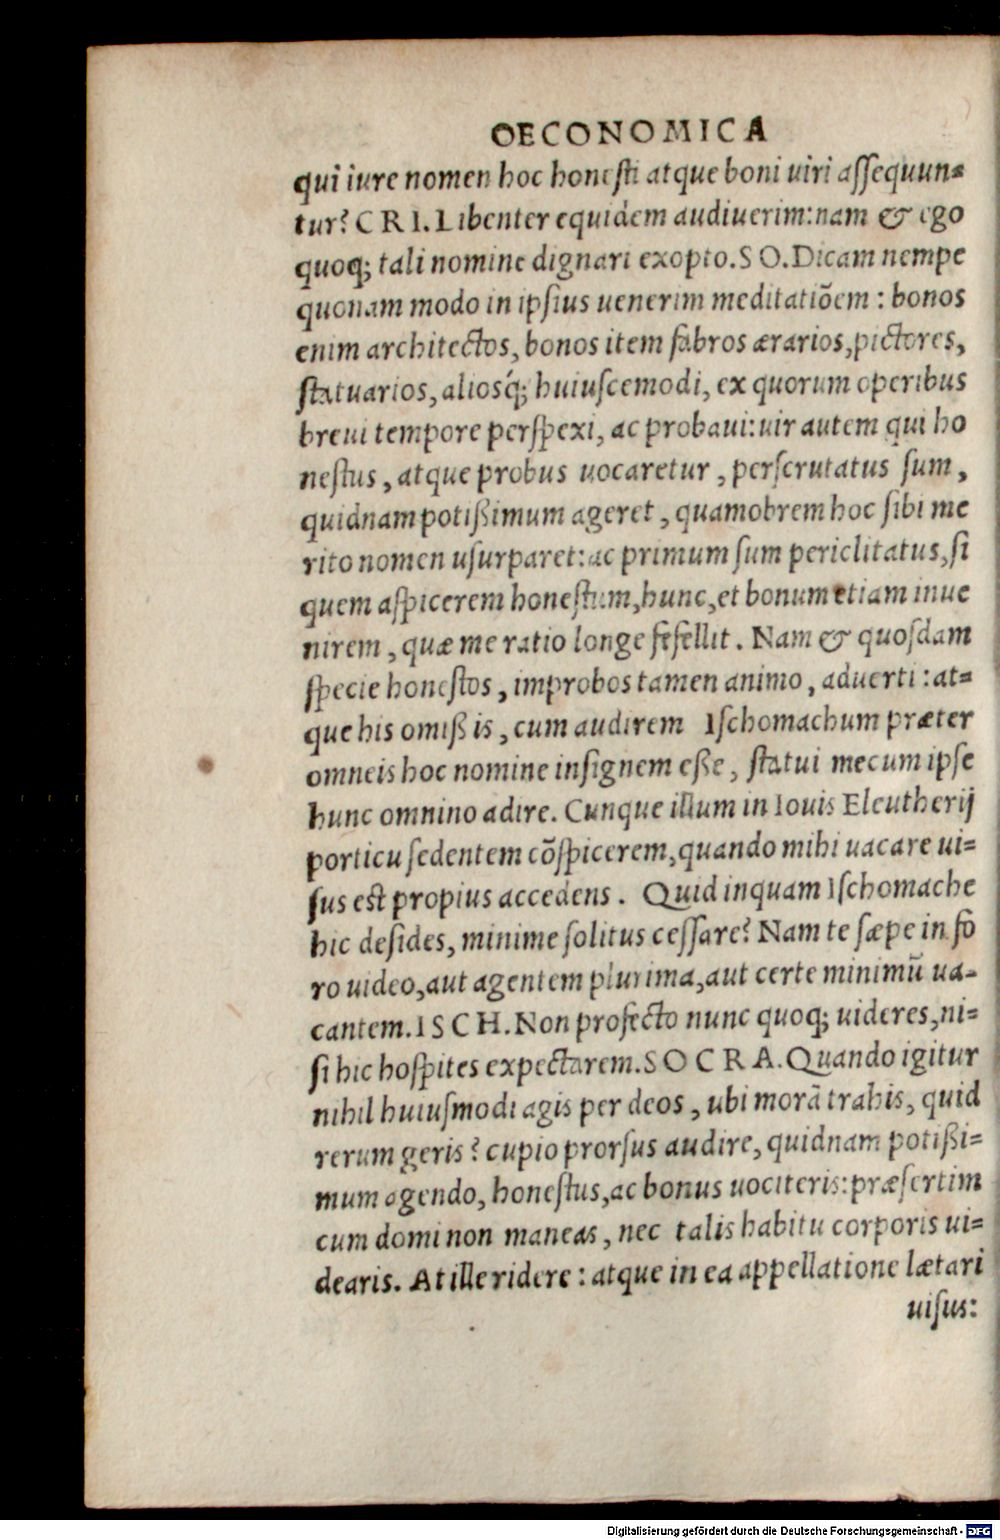 OECONOMICA
qui iure nomen hoc honesti atque boni uiri assequun-
tur? CRI. Libenter equidem audiuerim: nam & ego
quoq; tali nomine dignari exopto. SO. Dicam nempe
quonam modo in ipsius uenerim meditatiõem: bonos
enim architectos, bonos item fabros ærarios, pictores,
statuarios, aliosq́; huiuscemodi, ex quorum operibus
breui tempore perspexi, ac probaui: uir autem qui ho
nestus, atque probus uocaretur, perscrutatus sum,
quidnam potißimum ageret, quamobrem hoc sibi me
rito nomen usurparet: ac primum sum periclitatus, si
quem aspicerem honestum, hunc, et bonum etiam inue
nirem, quæ me ratio longe fefellit. Nam & quosdam
specie honestos, improbos tamen animo, aduerti: at-
que his omißis, cum audirem Ischomachum præter
omneis hoc nomine insignem eße, statui mecum ipse
hunc omnino adire. Cunque illum in Iouis Eleutherij
porticu sedentem cõspicerem, quando mihi uacare ui-
sus est propius accedens. Quid inquam Ischomache
hic desides, minime solitus cessare? Nam te sæpe in fo
ro uideo, aut agentem plurima, aut certe minimũ ua-
cantem. ISCH. Non profecto nunc quoq; uideres, ni-
si hic hospites expectarem. SOCRA. Quando igitur
nihil huiusmodi agis per deos, ubi morã trahis, quid
rerum geris? cupio prorsus audire, quidnam potißi-
mum agendo, honestus, ac bonus uociteris: præsertim
cum domi non maneas, nec talis habitu corporis ui-
dearis. At ille ridere: atque in ea appellatione lætari
uisus:
Digitalisierung gefördert durch die Deutsche Forschungsgemeinschaft - DFG